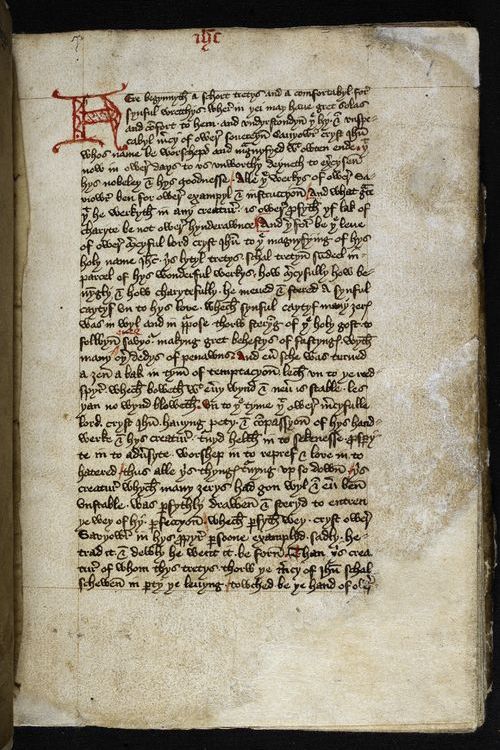 ihc
Here begynnyth a schort tretys and a comfortabyl for
synful wrecchys wher in þei may haue gret solas
and cõfort to hem. and vndyrstondyn þe hy & vnspe-
cabyl mcy of ower souereyn Sauyowr cryst ihũ
whos name be worschepd and magnyfyed wtowten ende. þt
now in ower days to vs vnworthy deyneth to exercysen
hys nobeley & hys goodnesse. Alle þe werkys of ower Sa
uiowr ben for ower exampyl & instruccyon. and what grce
þt he werkyth in any creatur. is ower profyth yf lak of
charyte be not ower hynderawnce And þerfor be þe leue
of ower mcyful lord cryst ihũ to þe magnyfyng of hys
holy name ihc. þis lytyl tretys schal tretyn sumdeel in
parcel of hys wonderful werkys. how mcyfully how be-
nyngly & how charytefully. he meued & stered a synful
caytyf vn to hys loue. whech synful caytyf many ȝerys
was in wyl and in ppose. thorw steryng of þe holy gost. to
folwyn sauyowr. makyng gret behestys of fastyngys. wyth
many oþer dedys of penawns. And euer sche was turned
a ȝen a bak in tym of temptacyon. lech vn to þe reed
spyr. whech boweth wt euery wynd & neuer is stable. les
þan no wynd bloweth. vn to þe tyme þt ower mcyfulle
lord. cryst ihũ. hauyng pety & compassyon of hys hand-
werke & hys creatur. turnyd helth in to sekenesse. prospy
te in to aduersyte. worshep in to repref & loue in to
hatered. thus alle þis thyngys turnyng up so down. þis
creatur whych many ȝerys had gon wyl & euer ben
vnstable. was parfythly drawen & steryd to entren
þe wey of hy perfeccyon. whech parfyth wey. cryst ower
Sauyowr in hys propyr persoone exampyld. sadly. he-
trad it & dewly he went it be forn. Than þis crea
tur of whom thys tretys. thorw þe mcy of ihũ schal
schewen in party þe leuyng. towched be þe hand of ow